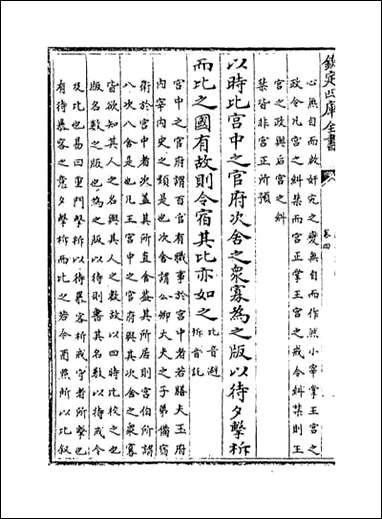 欽定四庫全書
卷四
心無自而啟奸宄之變無自而作然小宰掌王宮之
政令凡宮之糾禁而宮正掌王宮之戒令糾禁則王
宮之政與后宮之糾
禁皆非宮正所預
以時比宮中之官府次舍之衆寡為之版以待夕擊柝
而比之國有故則令宿其比亦如之 比音避 柝音託
宮中之官府謂百官有職事於宮中者若膳夫玉府
内宰内史之類是也次舍謂公卿大夫之子弟備宿
衛於宮中者次蓋其所直舍蓋其所居則宮伯所謂
八次八舍是也凡王宮中之官府與其次舍之衆寡
官欲知其人之名與其人之數故以四時比校之也
版名數之版也為之版以待則書其名數以待戒令
及比也易曰重門擊柝以待暴客柝戒守者所擊也
有待暴客之意夕擊柝而比之若今酉點所以比敘